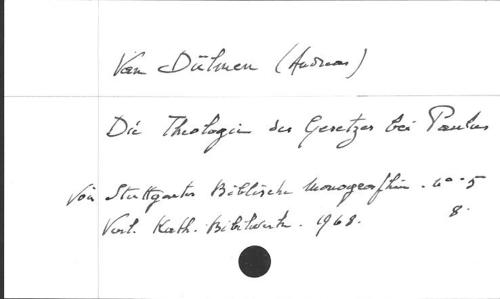 Van Dülmen (Andreas)
Die Theologie des Gesetzes bei Paulus
Voir Stuttgarter Biblische Monographien. n° 5
Verl. Kath. Bibelwerk. 1968. 8.